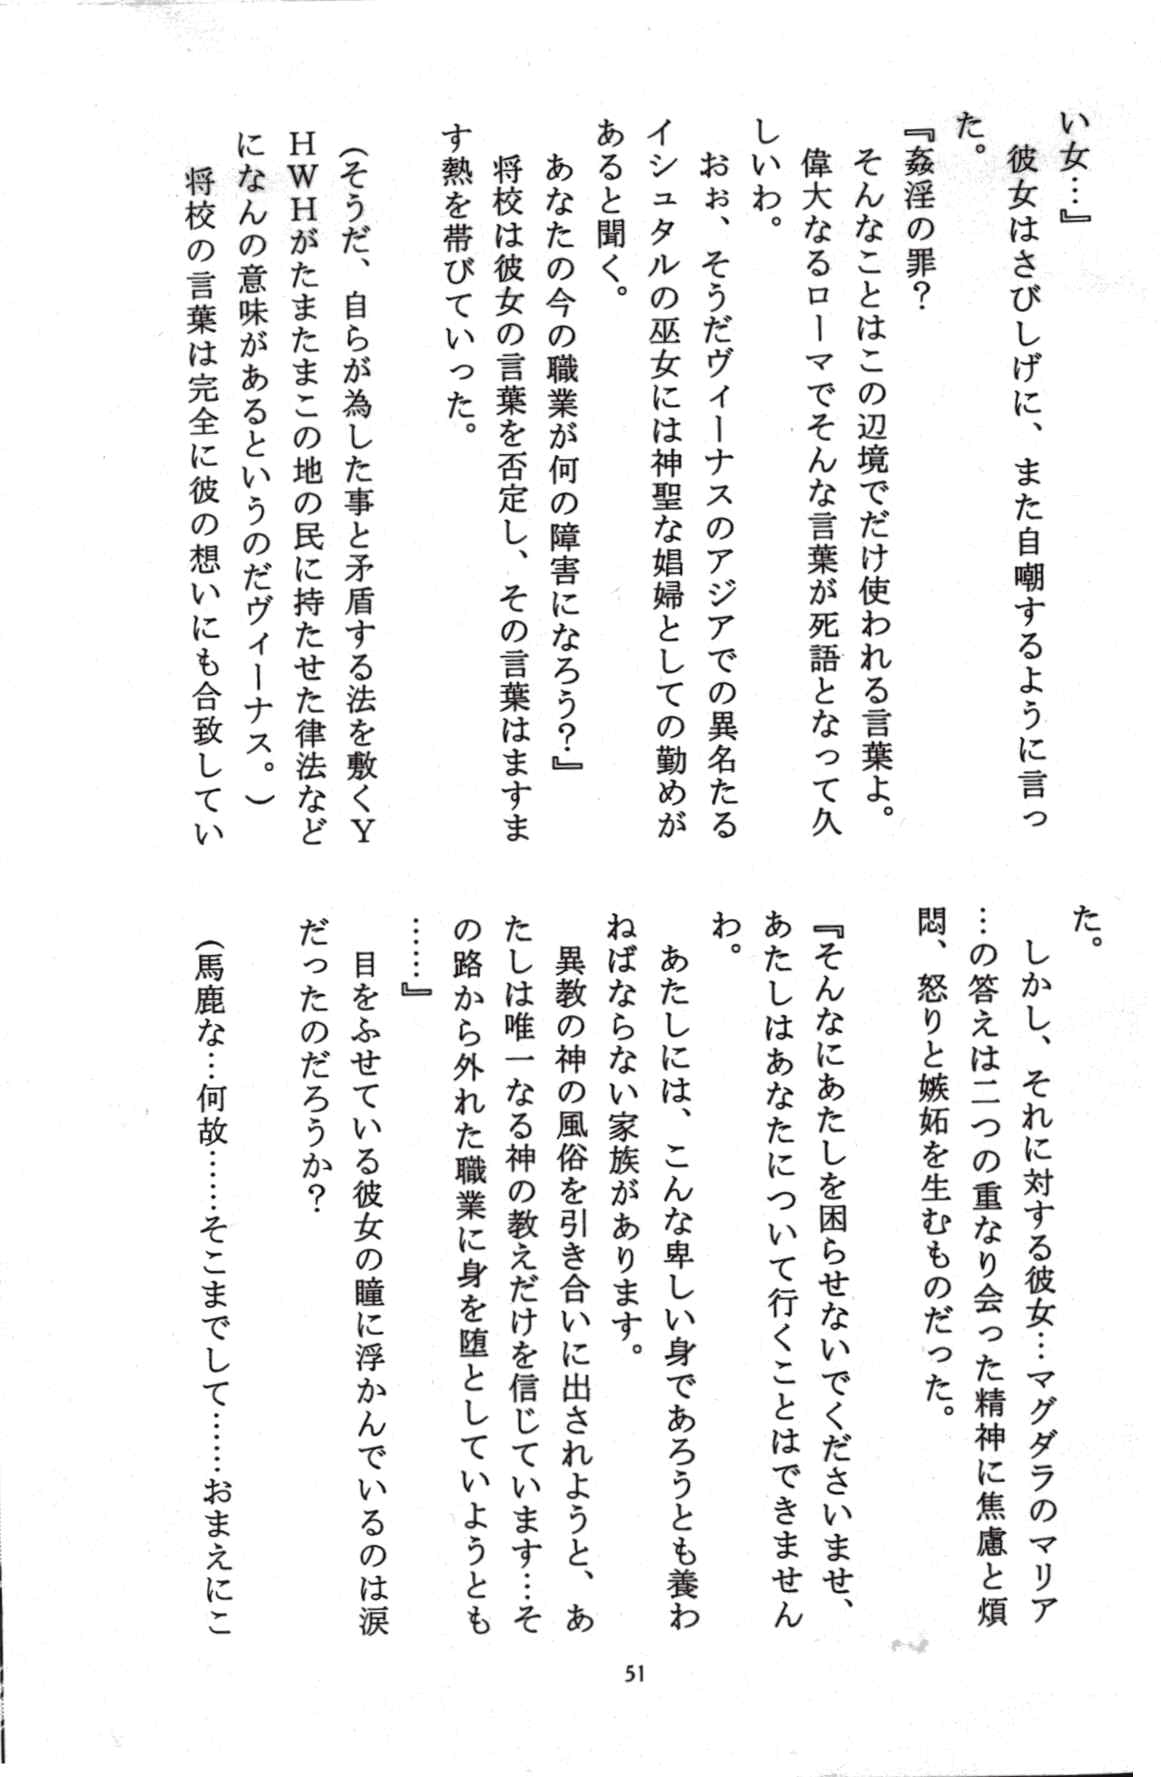 い女…』
　彼女はさびしげに、また自嘲するように言っ
た。
『姦淫の罪？
　そんなことはこの辺境でだけ使われる言葉よ。
　偉大なるローマでそんな言葉が死語となって久
しいわ。
　おぉ、そうだヴィーナスのアジアでの異名たる
イシュタルの巫女には神聖な娼婦としての勤めが
あると聞く。
　あなたの今の職業が何の障害になろう？』
　将校は彼女の言葉を否定し、その言葉はますま
す熱を帯びていった。
（そうだ、自らが為した事と矛盾する法を敷くＹ
ＨＷＨがたまたまこの地の民に持たせた律法など
になんの意味があるというのだヴィーナス。）
　将校の言葉は完全に彼の想いにも合致してい
た。
　しかし、それに対する彼女…マグダラのマリア
…の答えは二つの重なり会った精神に焦慮と煩
悶、怒りと嫉妬を生むものだった。
『そんなにあたしを困らせないでくださいませ、
あたしはあなたについて行くことはできません
わ。
　あたしには、こんな卑しい身であろうとも養わ
ねばならない家族があります。
　異教の神の風俗を引き合いに出されようと、あ
たしは唯一なる神の教えだけを信じています…そ
の路から外れた職業に身を堕としていようとも
……』
　目をふせている彼女の瞳に浮かんでいるのは涙
だったのだろうか？
（馬鹿な…何故……そこまでして……おまえにこ
51